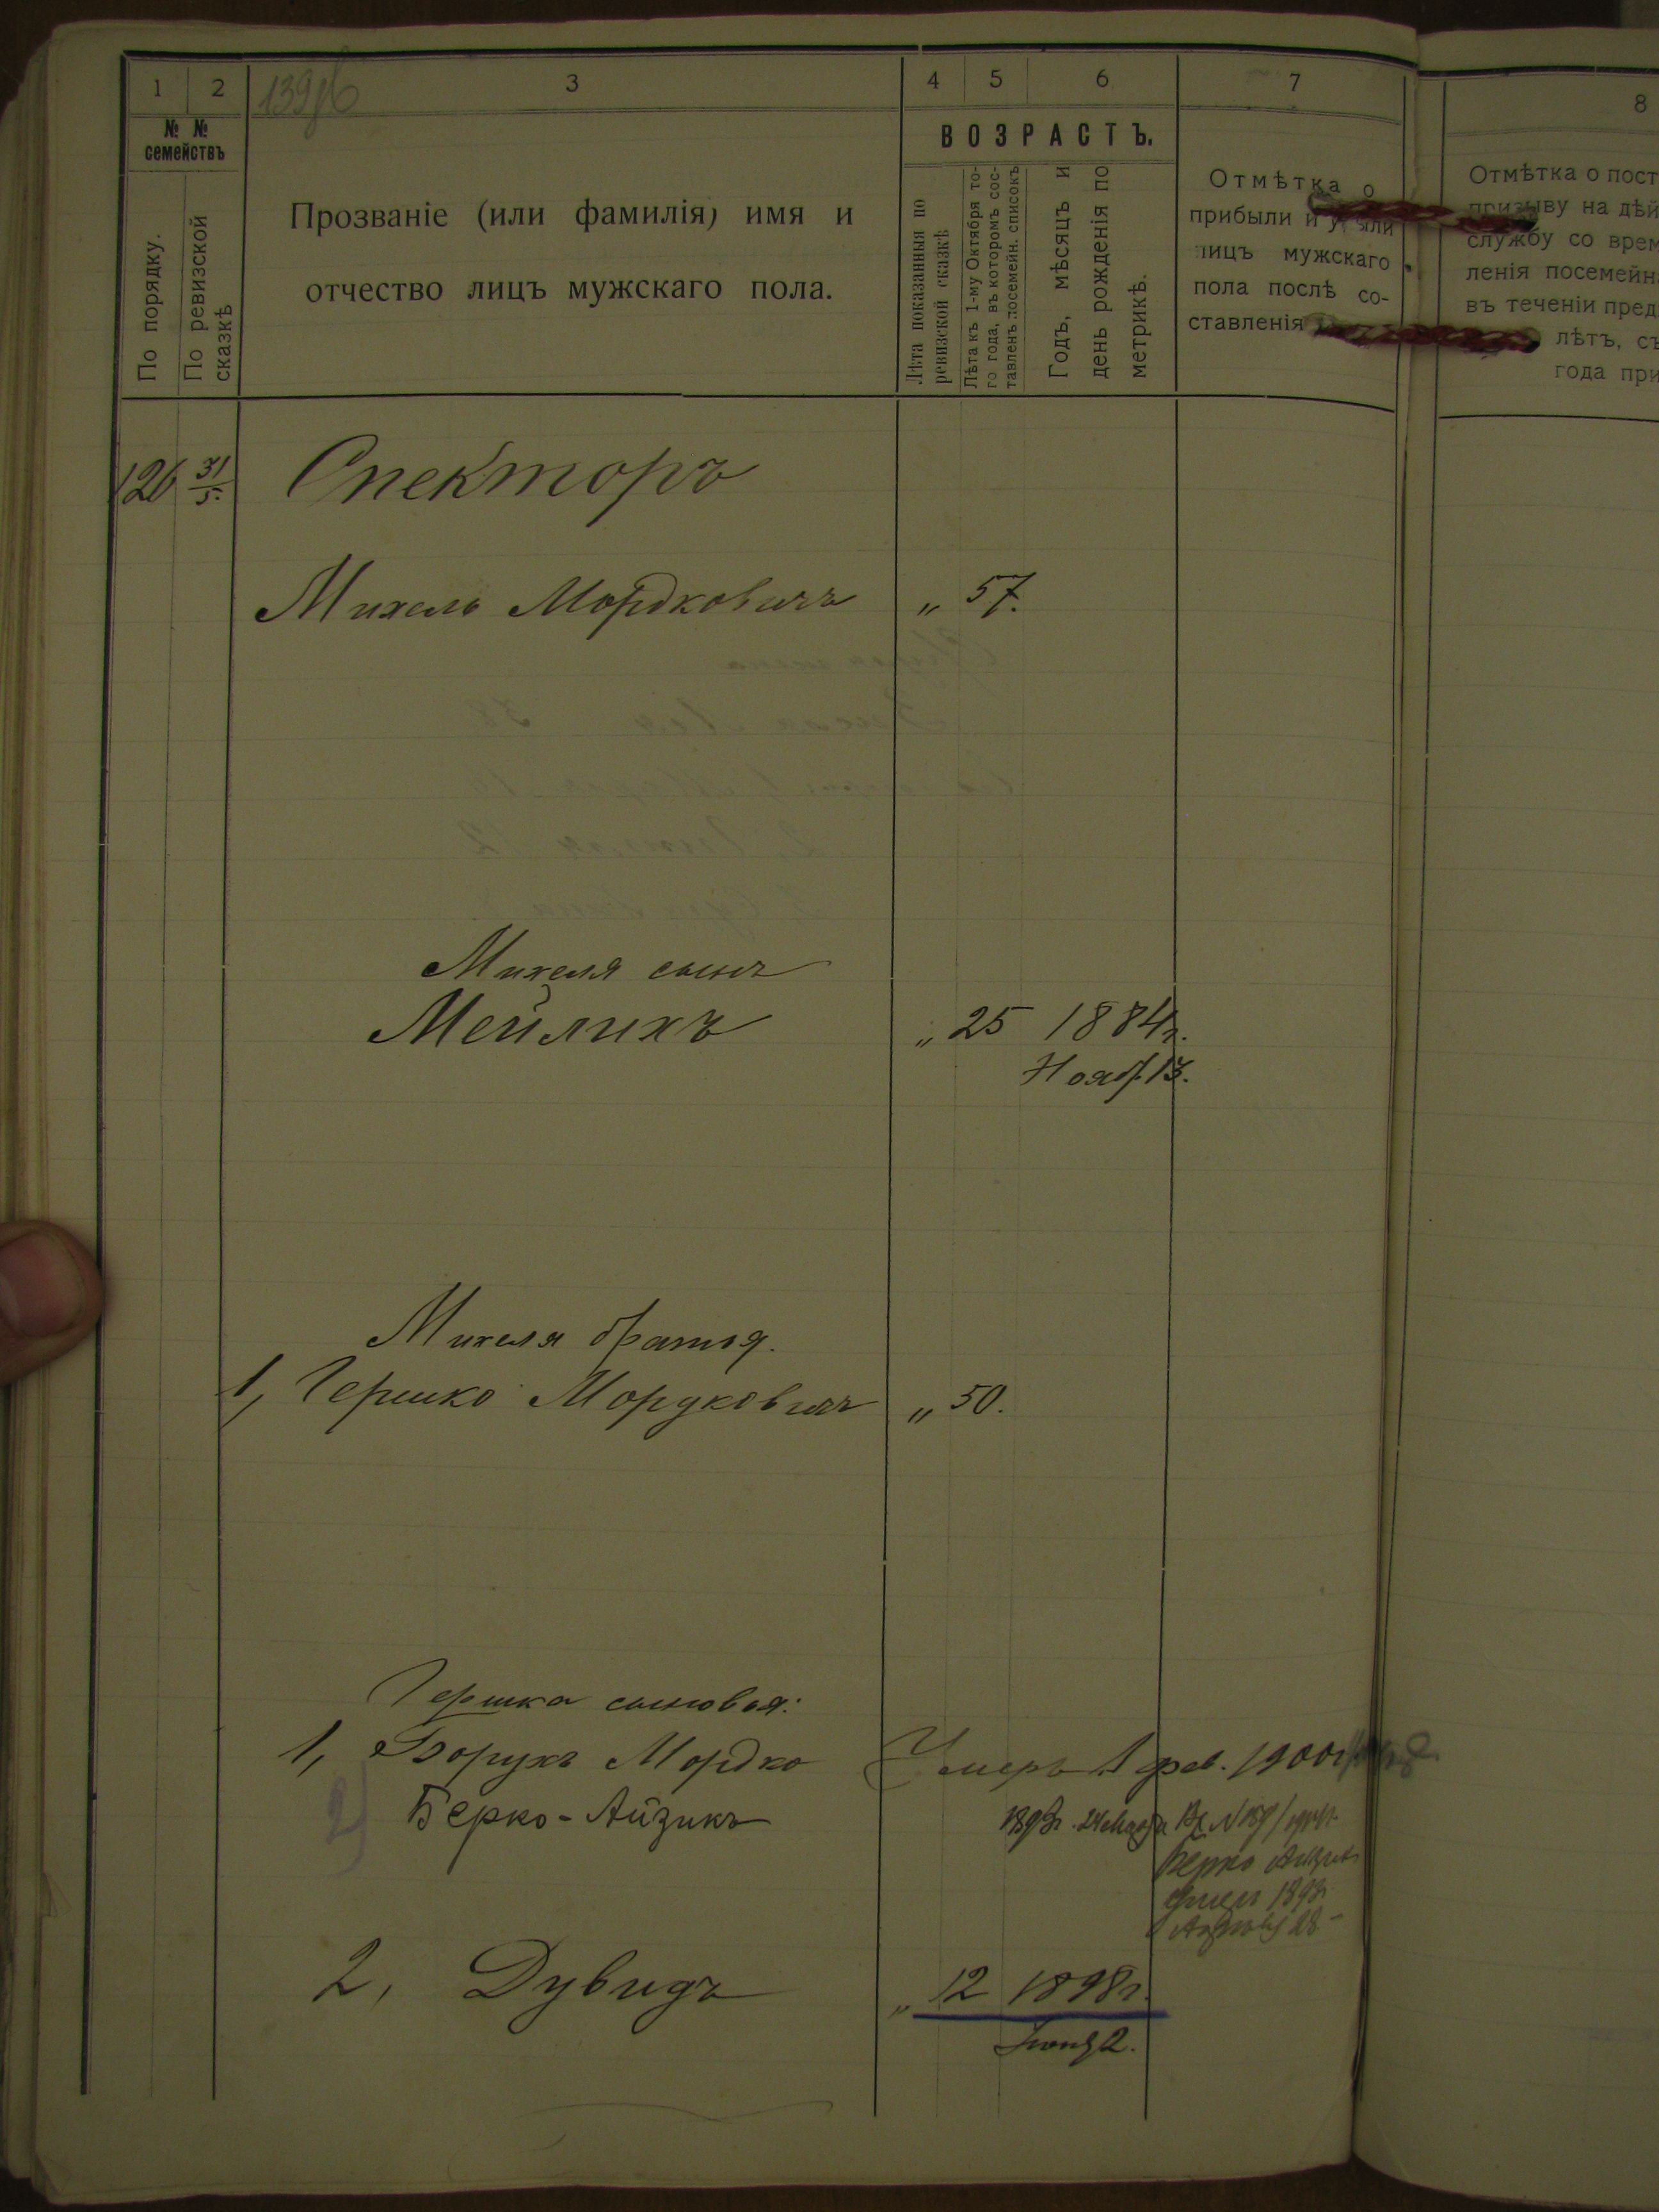 1 2 3 4 5 6 7 8
№ № семействъ
По порядку.
По ревизской сказкѣ
Прозваніе (или фамилія) имя и
отчество лицъ мужскаго пола.
ВОЗРАСТЪ.
Лѣта показанныя по ревизской сказкѣ
Лѣта къ 1-му Октября то-
го года, въ которомъ сос-
тавленъ посемейн. списокъ
Годъ, мѣсяцъ и
день рожденія по
метрикѣ.
Отмѣтка о
прибыли и
лицъ мужскаго
пола послѣ со-
ставленія
Отмѣтка о пост
призыву на дѣй
службу со врем
ленія посемейн
въ теченіи пред
лѣтъ, съ
года при
126 31/5. Спекторъ
Михель Мордковичъ „ 57.
Михеля сынъ
Мейлихъ „ 25 1884 г.
Нояб. 13.
Михеля братья.
1, Гершко Мордковичъ „ 50.
Гершка сыновья:
1, Борухъ Мордко Умеръ 1 фев. 1900 г
2) Берко-Айзикъ 1893г. 24 Марта
Берко Айзикъ
1893г
28
2, Дувидъ „ 12 1898 г.
Іюня 2.